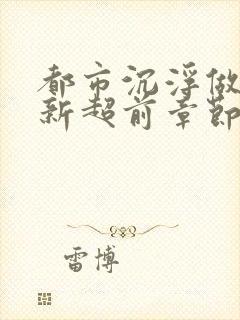 都市沉浮做
新超前章节
雷博